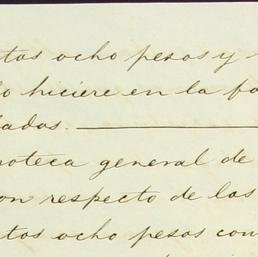 tos ocho pesos y
o hiciere en la fo
ados.
noteca general de
on respecto de los
tos ocho pesos con